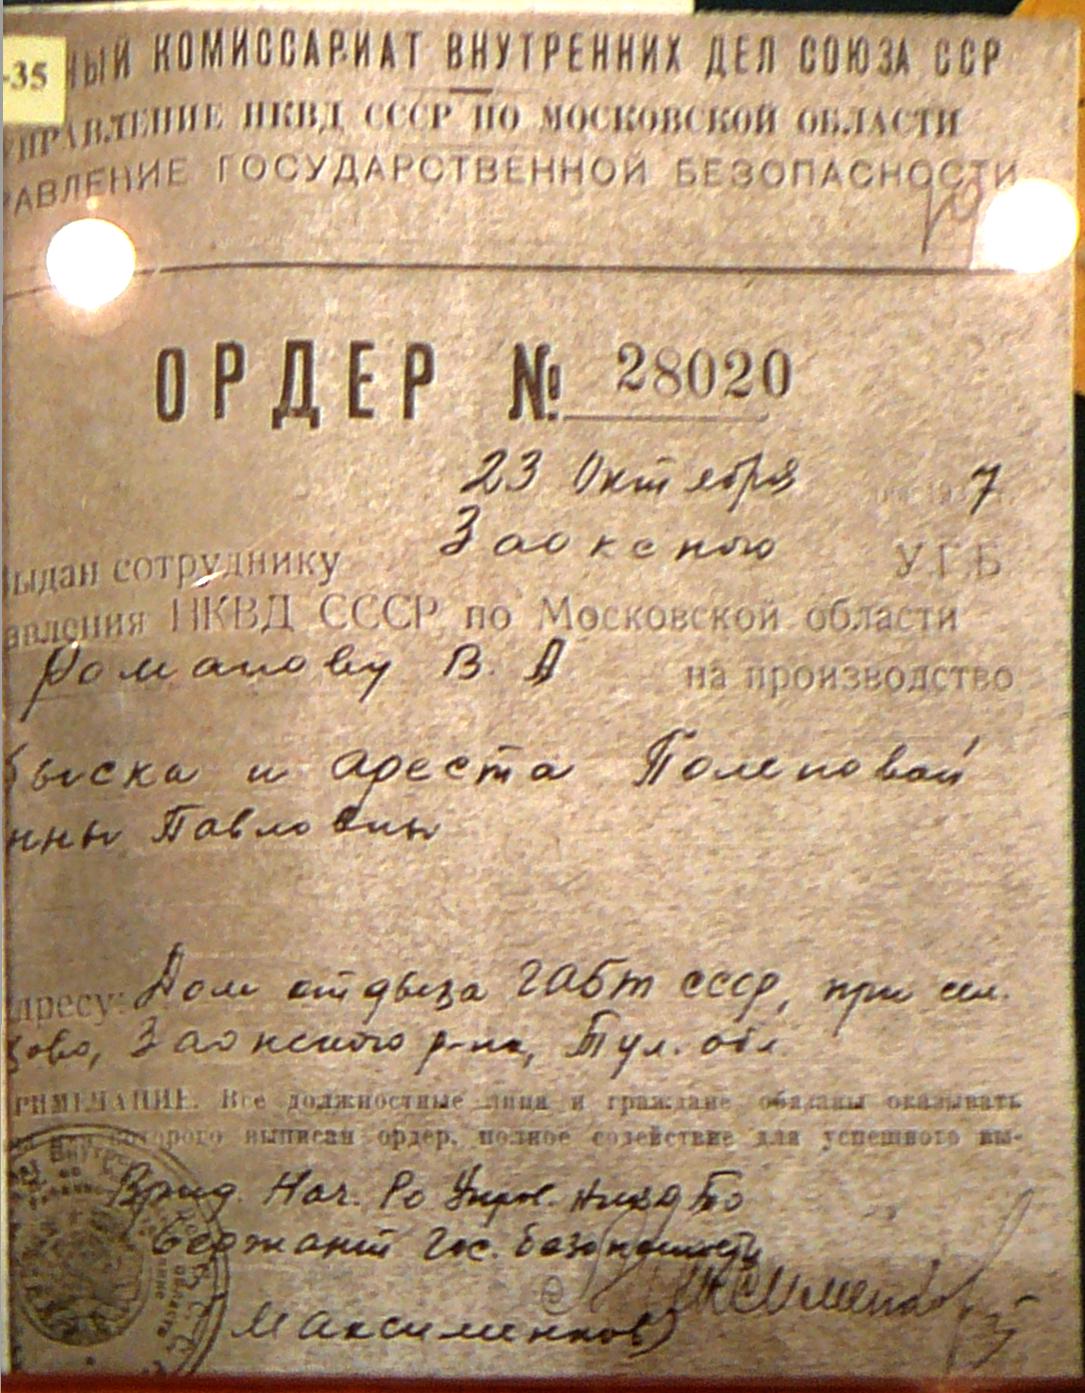 -35
НЫЙ КОМИССАРИАТ ВНУТРЕННИХ ДЕЛ СОЮЗА ССР
УПРАВЛЕНИЕ НКВД СССР ПО МОСКОВСКОЙ ОБЛАСТИ
РАВЛЕНИЕ ГОСУДАРСТВЕННОЙ БЕЗОПАСНОСТИ
ОРДЕР № 28020
23 Октября 7
Заокского
Выдан сотруднику У.Г.Б
авления НКВД СССР по Московской области
Романову В. А на производство
быска и ареста Поленовой
нны Павловны
дресу: Дом отдыха ГАБТ СССР, при сел.
Заокского р-на, Тул. обл.
РИМЕЧАНИЕ. Все должностные лица и граждане обязаны оказывать
которого выписан ордер, полное содействие для успешного вы-
Врид. Нач. Ро Упрв. НКВД ТО
Сержант Гос. безопасности
Максименков